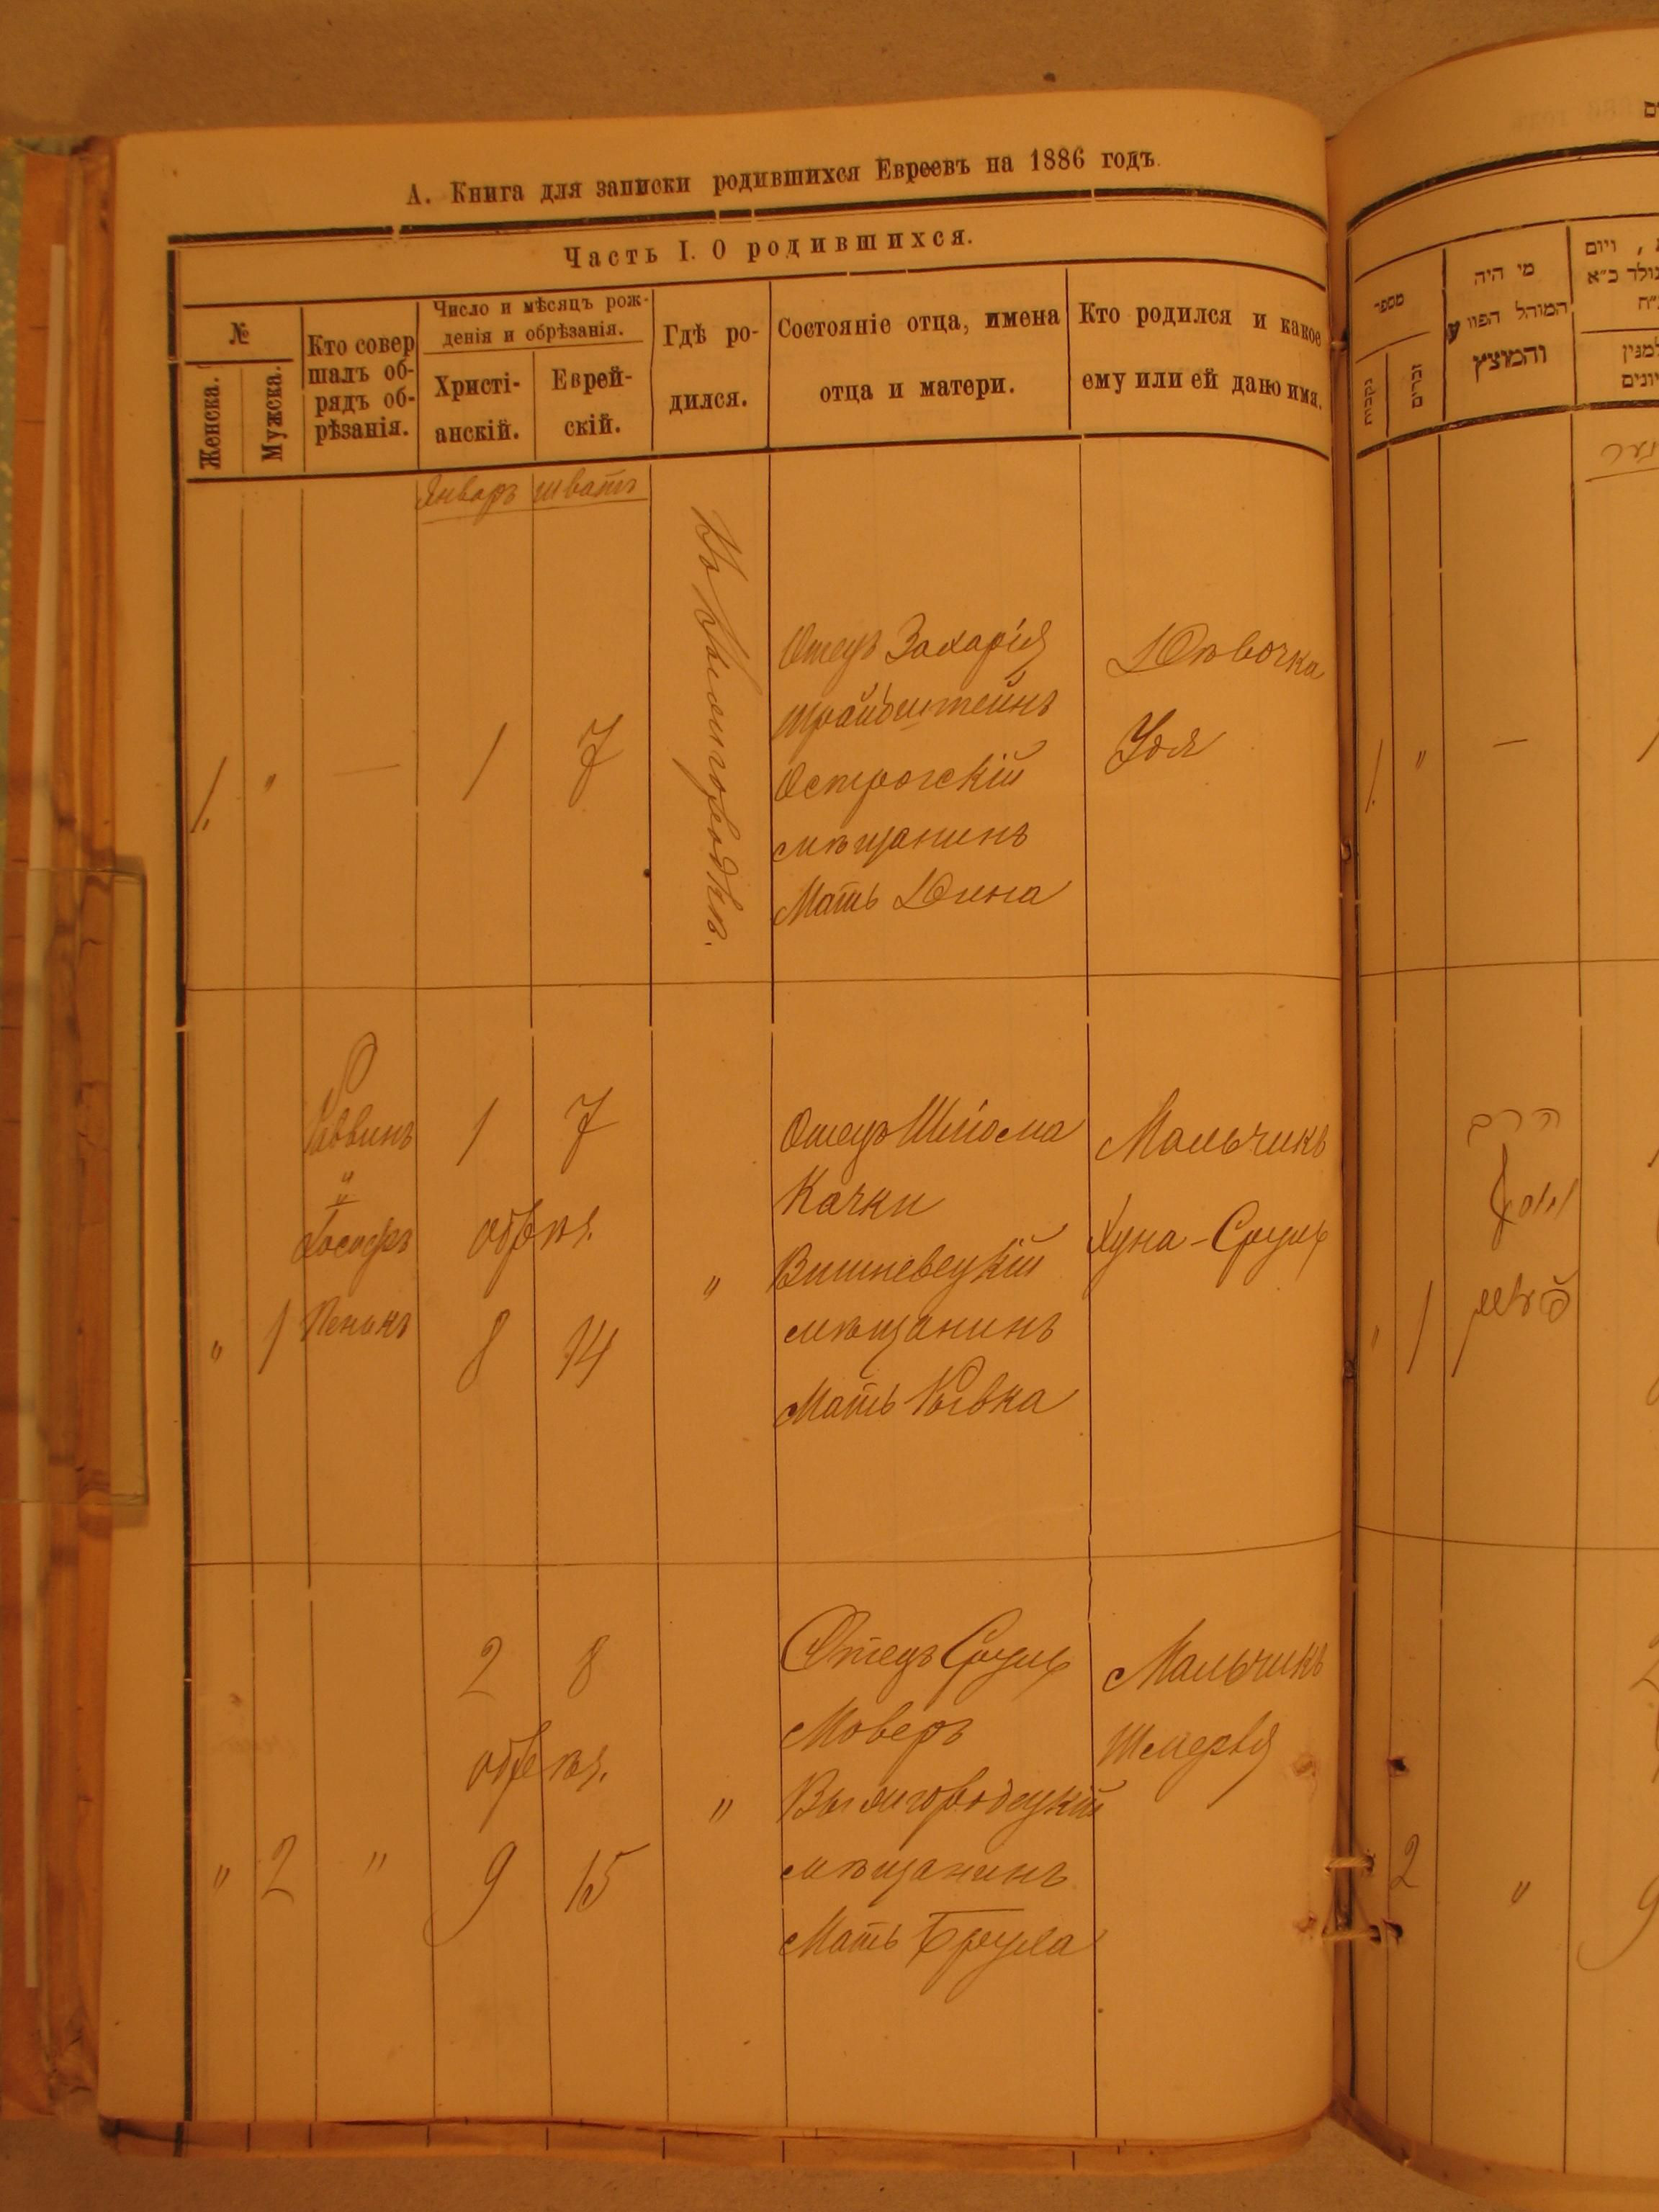 А. Книга для записки родившихся Евреевъ на 1886 годъ.
Часть I. О родившихся.
№
Женска.
Мужска.
Кто совер
шалъ об-
рядъ об-
рѣзанія.
Число и мѣсяцъ рож-
денія и обрѣзанія.
Христі-
анскій.
Еврей-
скій.
Гдѣ ро-
дился.
Состояніе отца, имена
отца и матери.
Кто родился и какое
ему или ей дано имя.
Январь шватъ
1. " — 1 7
Отецъ Захарія
Острогскій
мѣщанинъ
Мать Дина
Дѣвочка
Удя
" 1
Раввинъ
и
Іосифъ
1 7
обрѣз.
8 14
"
Отецъ Шліома
Качки
Вишневецкій
мѣщанинъ
Мать Ривка
Мальчикъ
Хуна-Сруль
" 2 "
2 8
обрѣз.
9 15
"
Отецъ Сруль
Моверъ
Вышгородецкій
мѣщанинъ
Мать Бруха
Мальчикъ
Шмерья
מספר
נקבות
זכרים
מי היה
המוהל הפורע
והמוצץ
ויום
1. " —
" 1
הרב
2 "